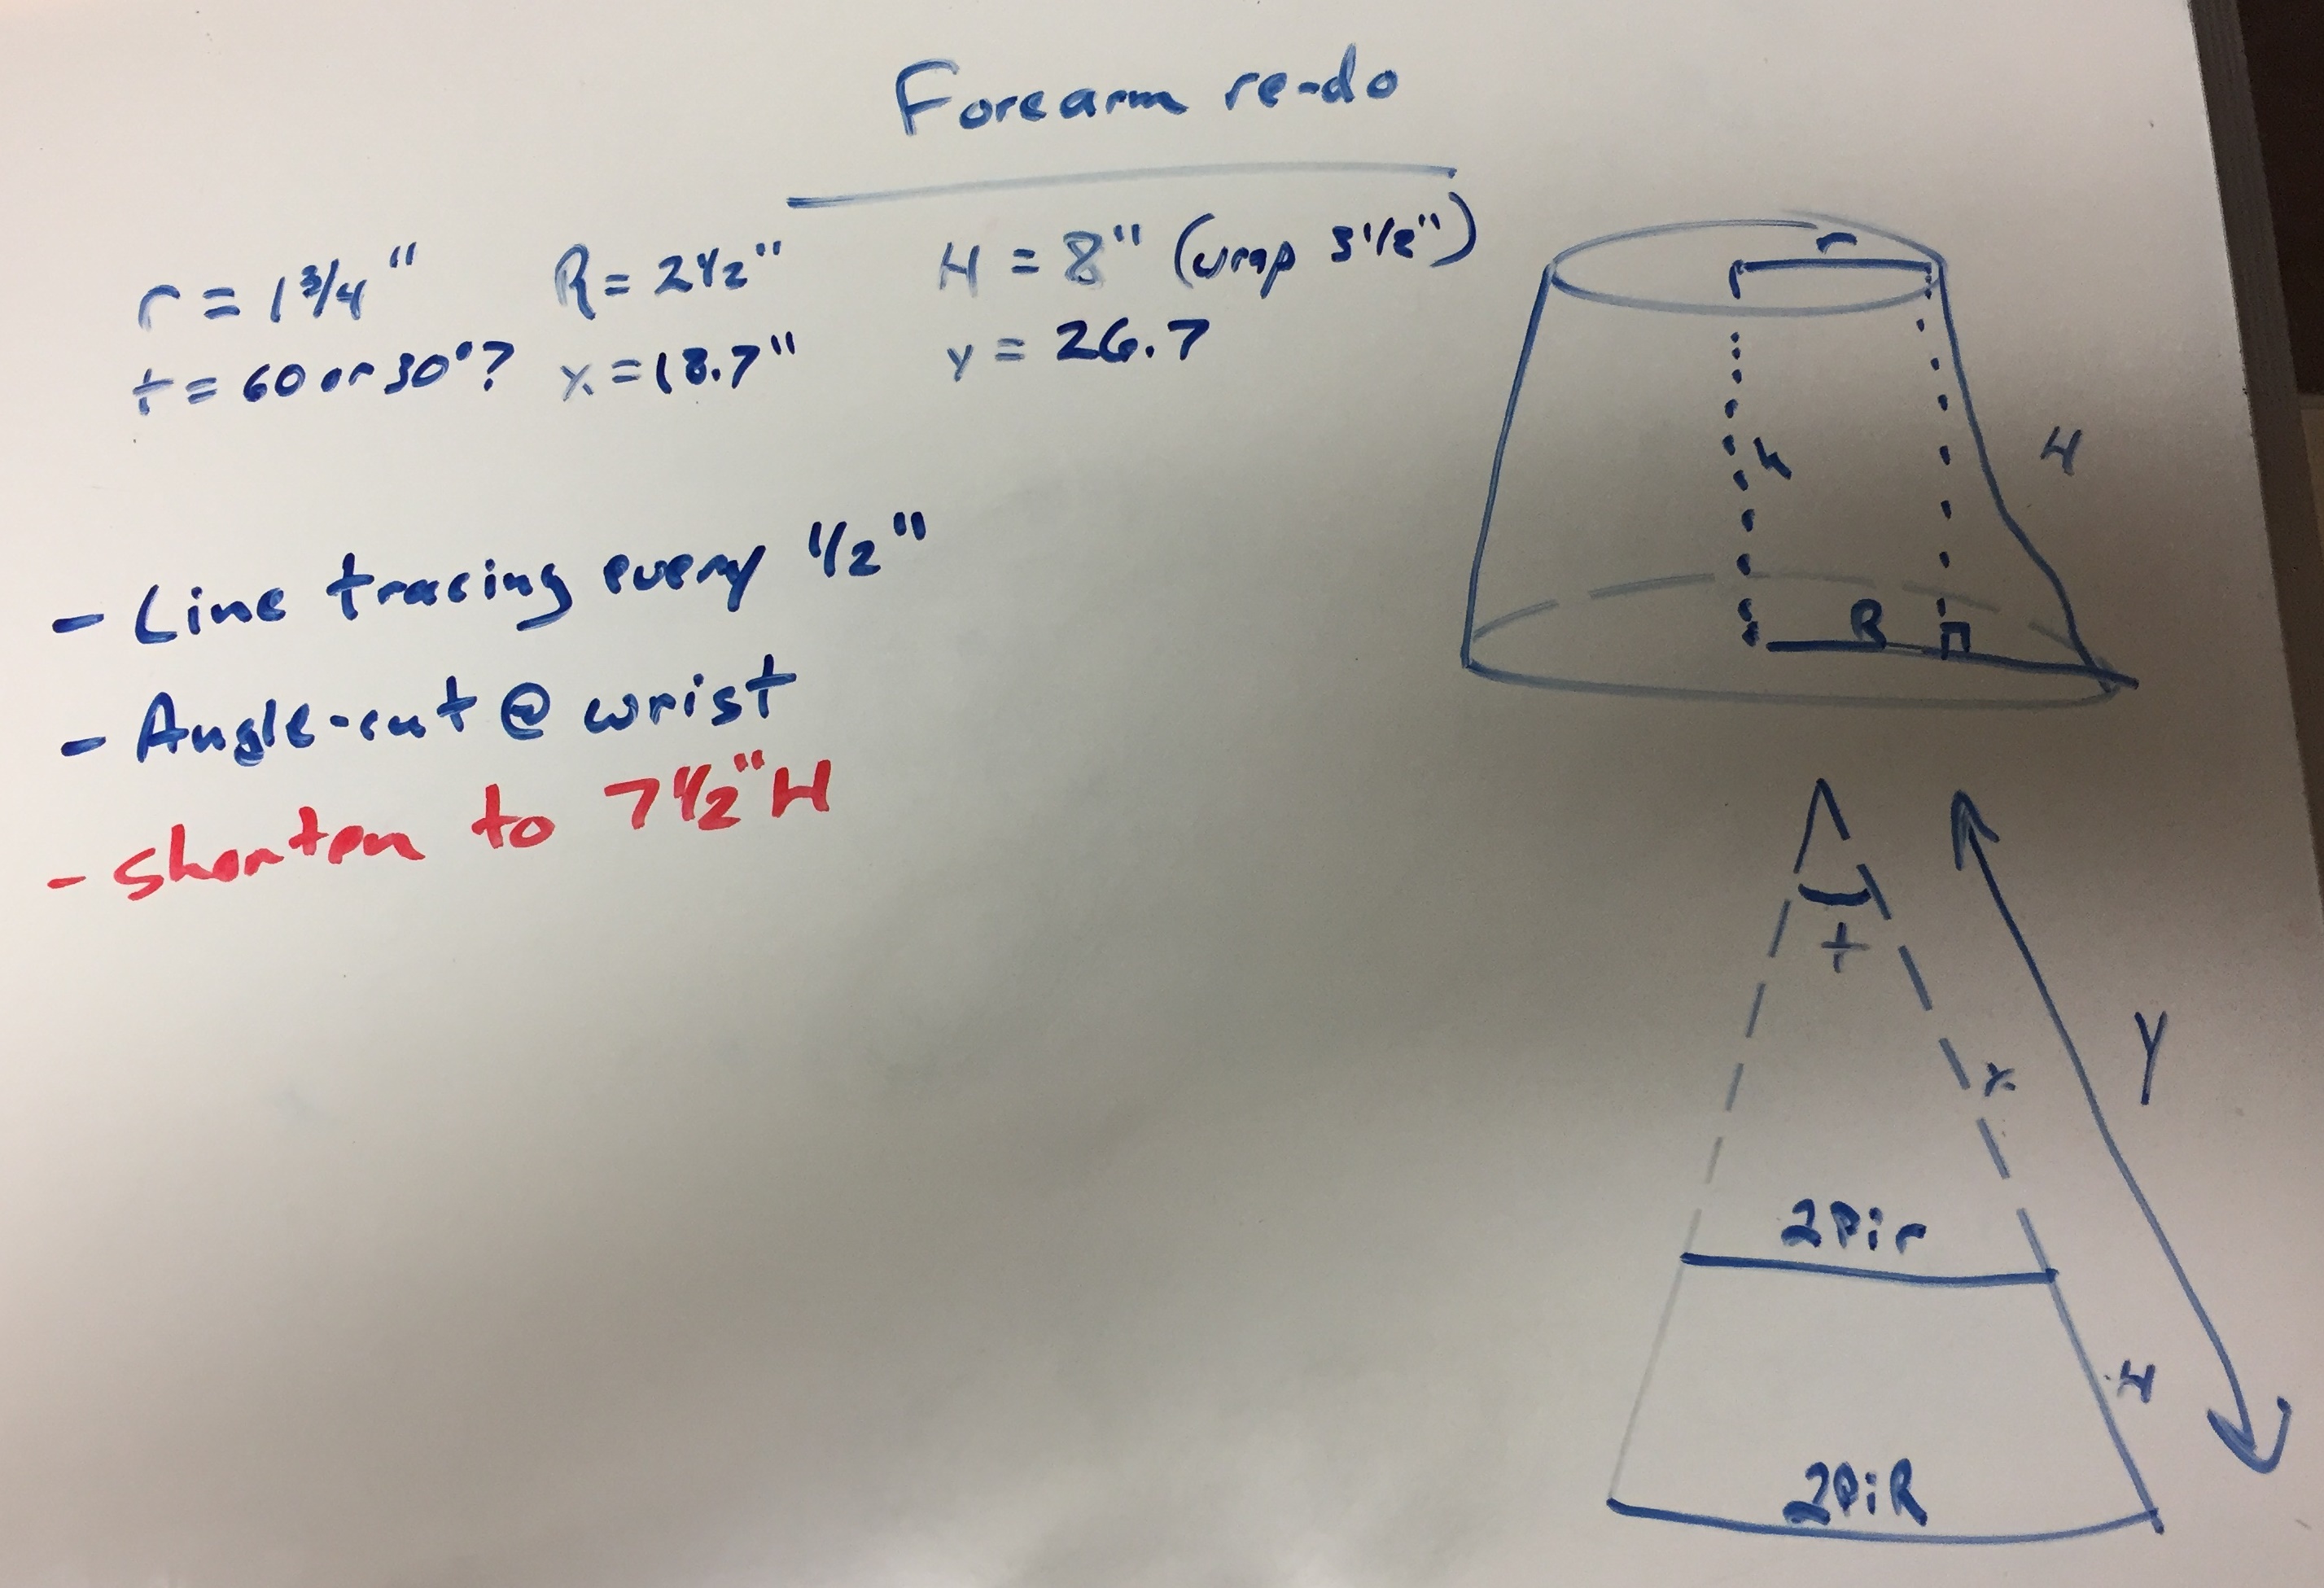 Forearm re-do
r = 1 3/4" R = 2 1/2" H = 8" (wrap 3 1/2")
t = 60 or 30°? x = 18.7" y = 26.7
- Line tracing every 1/2"
- Angle-cut @ wrist
- Shorten to 7 1/2" H
r
h
H
R
t
x
Y
2Pir
H
2PiR